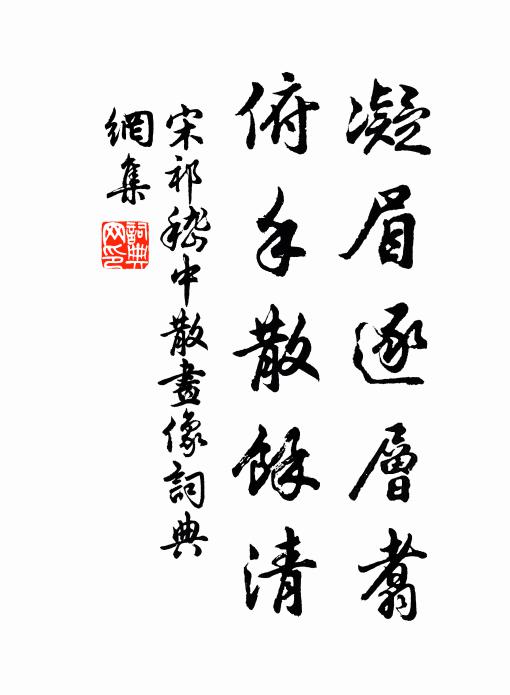 凝眉逐層翥
俯手散餘清
宋祁嵇中散畫像詞典
網集
詞典
网印